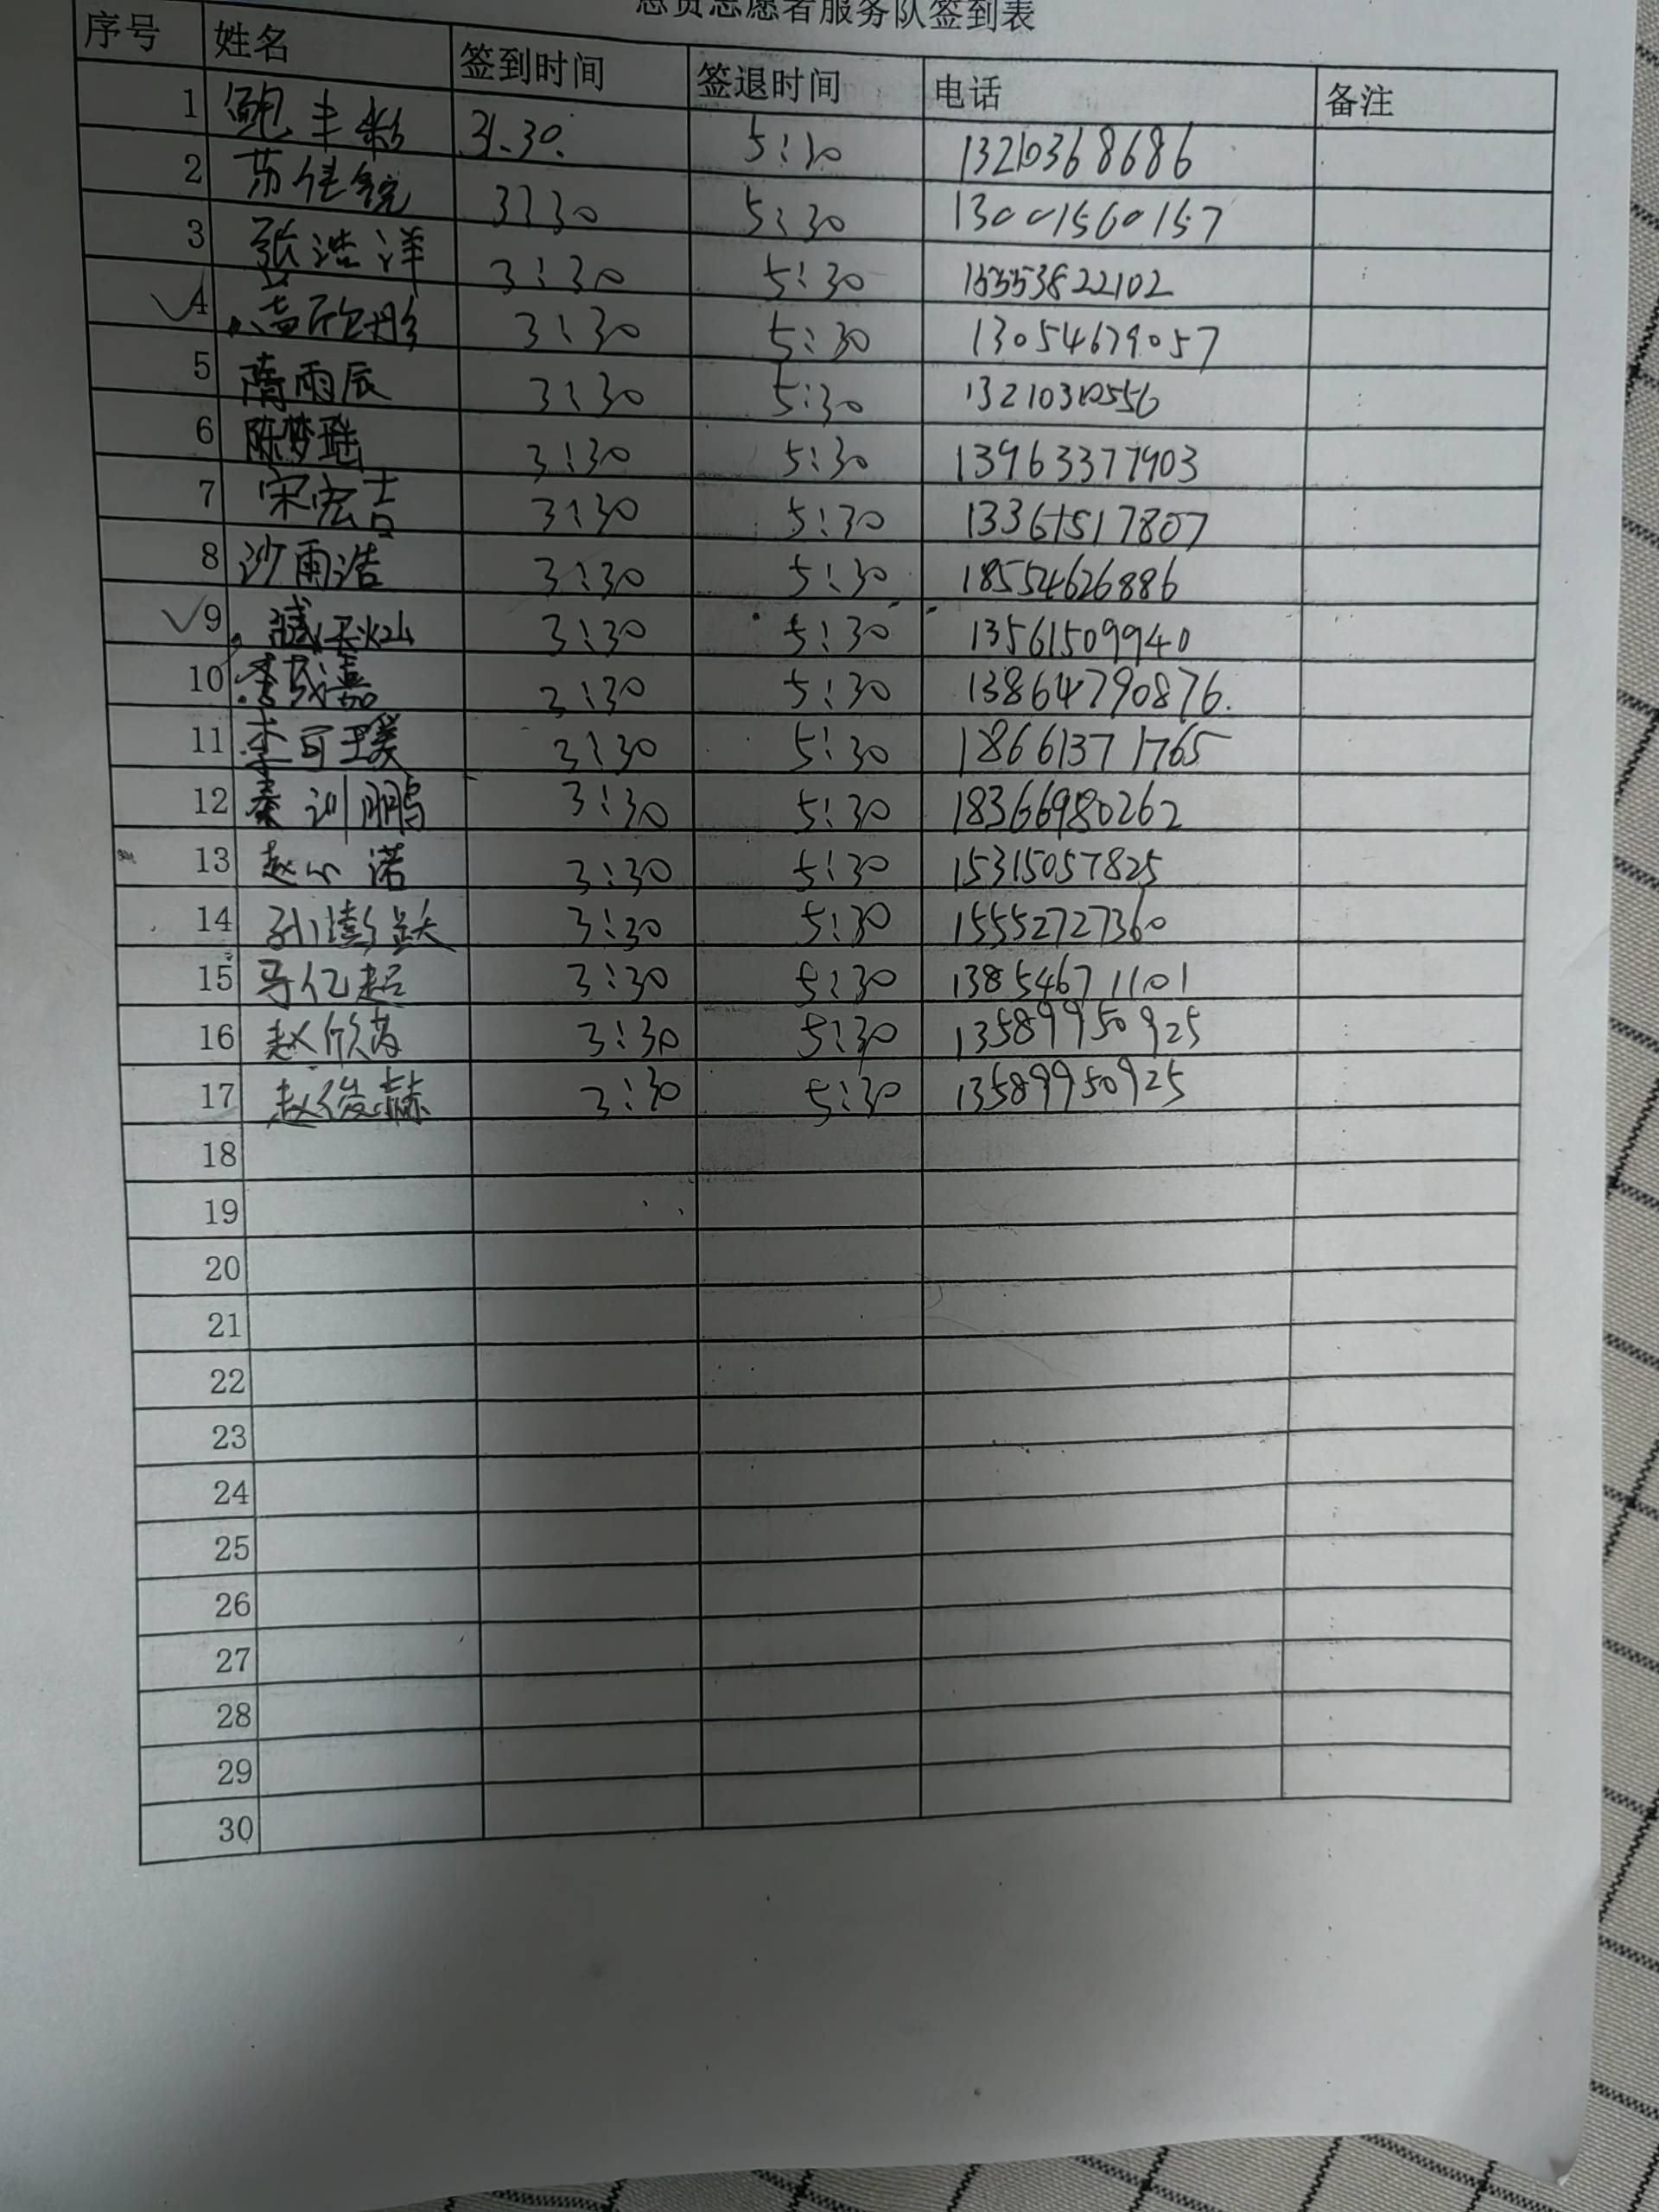 志愿者服务队签到表
序号 姓名 签到时间 签退时间 电话 备注
1 鲍丰 3:30 5:30 13210368686
2 苏佳统 3:30 5:30 13001560157
3 张浩洋 3:30 5:30 15553822102
4 欣彤 3:30 5:30 13054679057
5 隋雨辰 3:30 5:30
6 陈梦瑶 3:30 5:30 13963377903
7 宋宏吉 3:30 5:30 13361517807
8 沙雨浩 3:30 5:30 18554626886
9 3:30 5:30 13561509940
10 李 嘉 3:30 5:30 13864790876.
11 李可瑷 3:30 5:30 18661371765
12 秦训鹏 3:30 5:30 18366980262
13 赵 诺 3:30 5:30 15315057825
14 孙 跃 3:30 5:30 15552727360
15 马亿超 3:30 5:30 13854671101
16 赵欣芮 3:30 5:30 13589950925
17 赵俊赫 3:30 5:30 13589950925
18
19
20
21
22
23
24
25
26
27
28
29
30